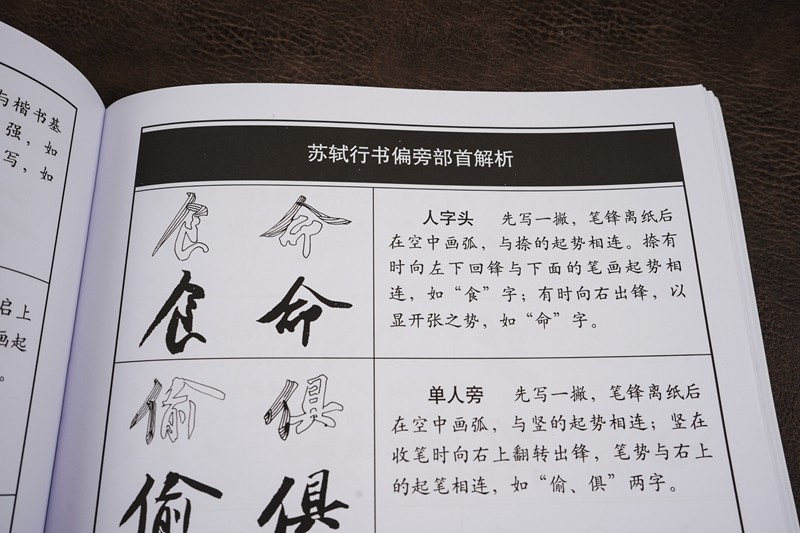 与楷书基
强，如
写，如
启上
画起
。
苏轼行书偏旁部首解析
食 命
食 命
人字头 先写一撇，笔锋离纸后
在空中画弧，与捺的起势相连。捺有
时向左下回锋与下面的笔画起势相
连，如“食”字；有时向右出锋，以
显开张之势，如“命”字。
偷 俱
偷 俱
单人旁 先写一撇，笔锋离纸后
在空中画弧，与竖的起势相连；竖在
收笔时向右上翻转出锋，笔势与右上
的起笔相连，如“偷、俱”两字。